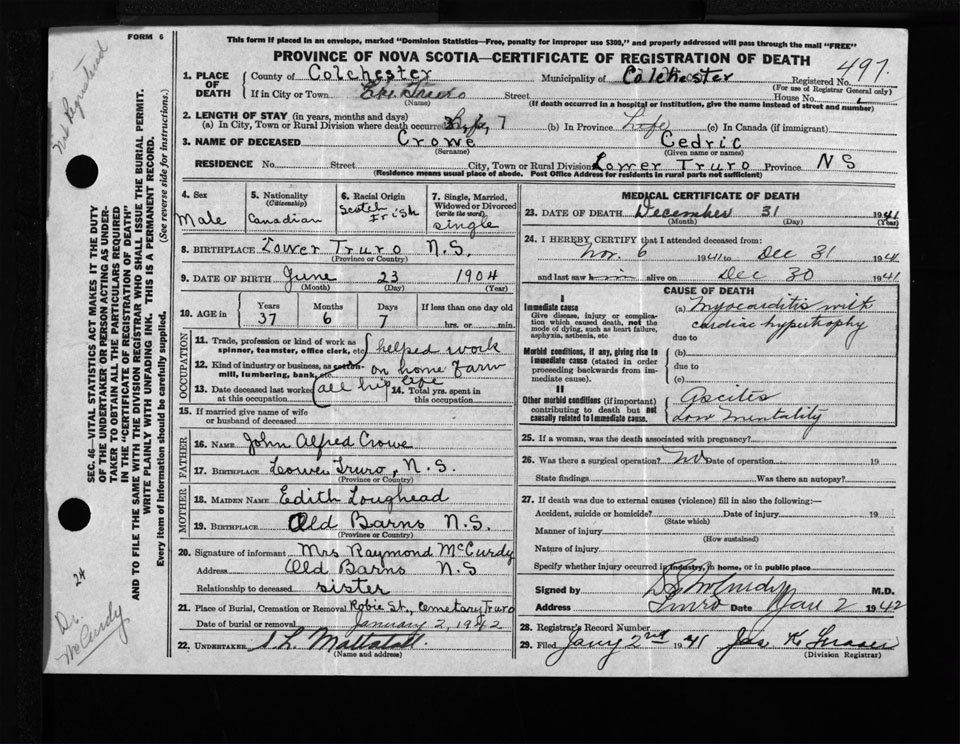 FORM 6
This form if placed in an envelope, marked "Dominion Statistics—Free, penalty for improper use $300," and properly addressed will pass through the mail "FREE"
PROVINCE OF NOVA SCOTIA—CERTIFICATE OF REGISTRATION OF DEATH
497.
1. PLACE OF DEATH
County of Colchester Municipality of Colchester Registered No.
(For use of Registrar General only)
If in City or Town Truro Street House No.
(Name) (If death occurred in a hospital or institution, give the name instead of street and number)
2. LENGTH OF STAY (in years, months and days)
(a) In City, Town or Rural Division where death occurred Life, 7 (b) In Province Life (c) In Canada (if immigrant)
3. NAME OF DECEASED Crowe Cedric
(Surname) (Given name or names)
RESIDENCE No. Street City, Town or Rural Division Lower Truro Province N S
(Residence means usual place of abode. Post Office Address for residents in rural parts not sufficient)
4. Sex Male
5. Nationality (Citizenship) Canadian
6. Racial Origin Scotch Irish
7. Single, Married, Widowed or Divorced (write the word) single
8. BIRTHPLACE Lower Truro N.S.
(Province or Country)
9. DATE OF BIRTH June 23 1904
(Month) (Day) (Year)
10. AGE in Years 37 Months 6 Days 7 If less than one day old
hrs. or min.
OCCUPATION
11. Trade, profession or kind of work as spinner, teamster, office clerk, etc. helped work
12. Kind of industry or business, as cotton-mill, lumbering, bank, etc. on home farm
13. Date deceased last worked at this occupation all his life
14. Total yrs. spent in this occupation
15. If married give name of wife or husband of deceased
FATHER
16. NAME John Alfred Crowe
17. BIRTHPLACE Lower Truro, N.S.
(Province or Country)
MOTHER
18. MAIDEN NAME Edith Loughead
19. BIRTHPLACE Old Barns N.S.
(Province or Country)
20. Signature of informant Mrs Raymond McCurdy
Address Old Barns N.S
Relationship to deceased sister
21. Place of Burial, Cremation or Removal Robie St., Cemetary Truro
Date of burial or removal January 2, 1942
22. UNDERTAKER S. L. Mattatall
(Name and address)
MEDICAL CERTIFICATE OF DEATH
23. DATE OF DEATH December 31 1941
(Month) (Day)
24. I HEREBY CERTIFY that I attended deceased from:
Nov. 6 1941 to Dec 31 1941
and last saw him alive on Dec 30 1941
CAUSE OF DEATH
I
Immediate cause
Give disease, injury or complication which caused death, not the mode of dying, such as heart failure, asphyxia, asthenia, etc.
(a) Myocarditis with
cardiac hypertrophy
due to
Morbid conditions, if any, giving rise to immediate cause (stated in order preceeding backwards from immediate cause).
(b)
due to
(c)
II
Other morbid conditions (if important) contributing to death but not causally related to immediate cause.
Ascites
Low mentality
25. If a woman, was the death associated with pregnancy?
26. Was there a surgical operation? No Date of operation 19
State findings Was there an autopsy?
27. If death was due to external causes (violence) fill in also the following:—
Accident, suicide or homicide? Date of injury 19
(State which)
Manner of injury
(How sustained)
Nature of injury
Specify whether injury occurred in industry, in home, or in public place
Signed by McCurdy M.D.
Address Truro Date Jan 2 1942
28. Registrar's Record Number
29. Filed Jany 2nd 1941 Jas. K. Fraser
(Division Registrar)
SEC. 46—VITAL STATISTICS ACT MAKES IT THE DUTY
OF THE UNDERTAKER OR PERSON ACTING AS UNDER-
TAKER TO OBTAIN ALL THE PARTICULARS REQUIRED
IN THE "CERTIFICATE OF REGISTRATION OF DEATH"
AND TO FILE THE SAME WITH THE DIVISION REGISTRAR WHO SHALL ISSUE THE BURIAL PERMIT.
WRITE PLAINLY WITH UNFADING INK. THIS IS A PERMANENT RECORD.
Every item of information should be carefully supplied. (See reverse side for instructions.)
Not Registered
24
Dr. McCurdy